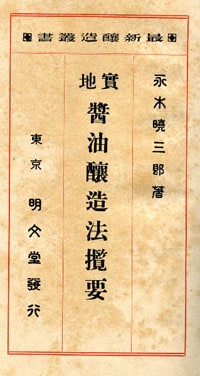 最新釀造叢書
永木曉三郎著
實地 醬油釀造法攬要
東京 明文堂發行